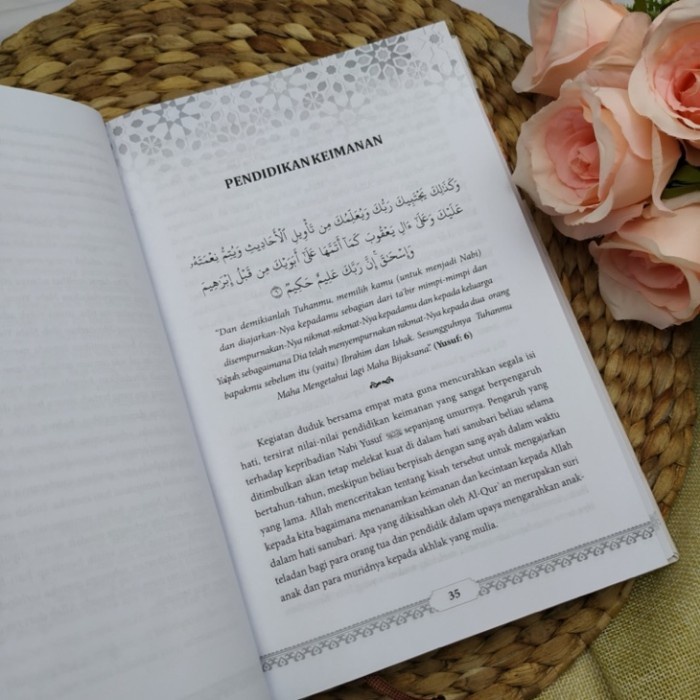 PENDIDIKAN KEIMANAN
وَكَذَٰلِكَ يَجْتَبِيكَ رَبُّكَ وَيُعَلِّمُكَ مِن تَأْوِيلِ ٱلْأَحَادِيثِ وَيُتِمُّ نِعْمَتَهُۥ
عَلَيْكَ وَعَلَىٰٓ ءَالِ يَعْقُوبَ كَمَآ أَتَمَّهَا عَلَىٰٓ أَبَوَيْكَ مِن قَبْلُ إِبْرَٰهِيمَ
وَإِسْحَٰقَ إِنَّ رَبَّكَ عَلِيمٌ حَكِيمٌ ٦
"Dan demikianlah Tuhanmu, memilih kamu (untuk menjadi Nabi)
dan diajarkan-Nya kepadamu sebagian dari ta'bir mimpi-mimpi dan
disempurnakan-Nya nikmat-nikmat-Nya kepadamu dan kepada keluarga
Ya'qub, sebagaimana Dia telah menyempurnakan nikmat-Nya kepada dua orang
bapakmu sebelum itu (yaitu) Ibrahim dan Ishak. Sesungguhnya Tuhanmu
Maha Mengetahui lagi Maha Bijaksana." (Yusuf: 6)
Kegiatan duduk bersama empat mata guna mencurahkan segala isi
hati, tersirat nilai-nilai pendidikan keimanan yang sangat berpengaruh
terhadap kepribadian Nabi Yusuf sepanjang umurnya. Pengaruh yang
ditimbulkan akan tetap melekat kuat di dalam hati sanubari beliau selama
bertahun-tahun, meskipun beliau berpisah dengan sang ayah dalam waktu
yang lama. Allah menceritakan tentang kisah tersebut untuk mengajarkan
kepada kita bagaimana menanamkan keimanan dan kecintaan kepada Allah
dalam hati sanubari. Apa yang dikisahkan oleh Al-Qur'an merupakan suri
teladan bagi para orang tua dan pendidik dalam upaya mengarahkan anak-
anak dan para muridnya kepada akhlak yang mulia.
35